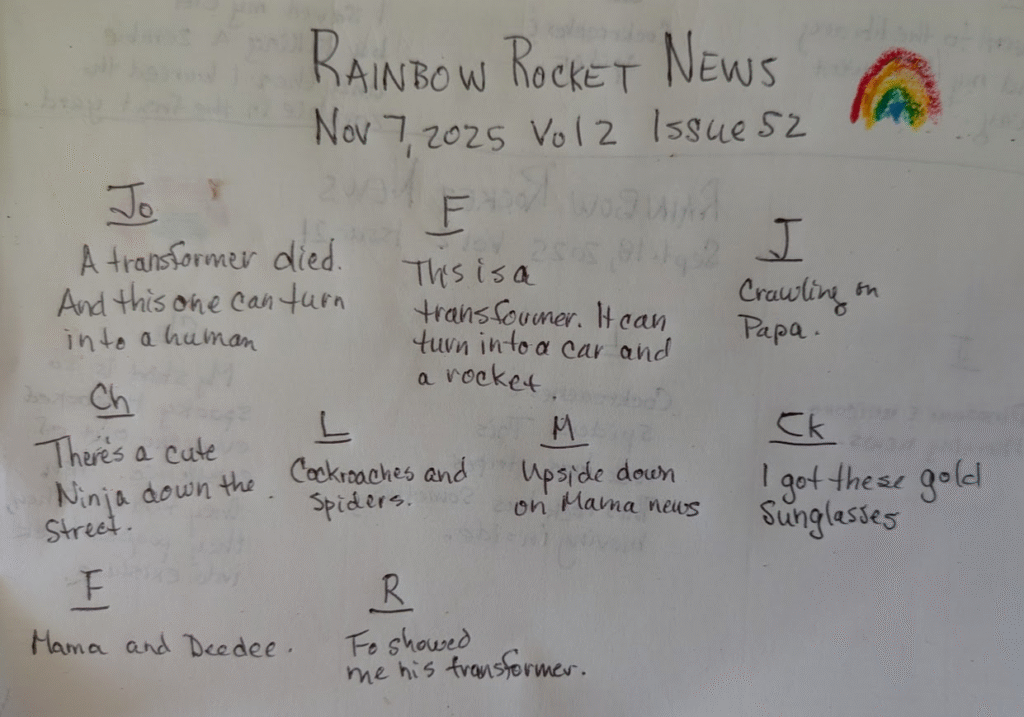 RAINBOW ROCKET NEWS
Nov 7, 2025 Vol 2 Issue 52
Jo
A transformer died.
And this one can turn
into a human
F
This is a
transformer. It can
turn into a car and
a rocket.
J
Crawling on
Papa.
Ch
There's a cute
Ninja down the
Street.
L
Cockroaches and
Spiders.
M
Upside down
on Mama news
Ck
I got these gold
Sunglasses
F
Mama and Deedee.
R
Fo showed
me his transformer.